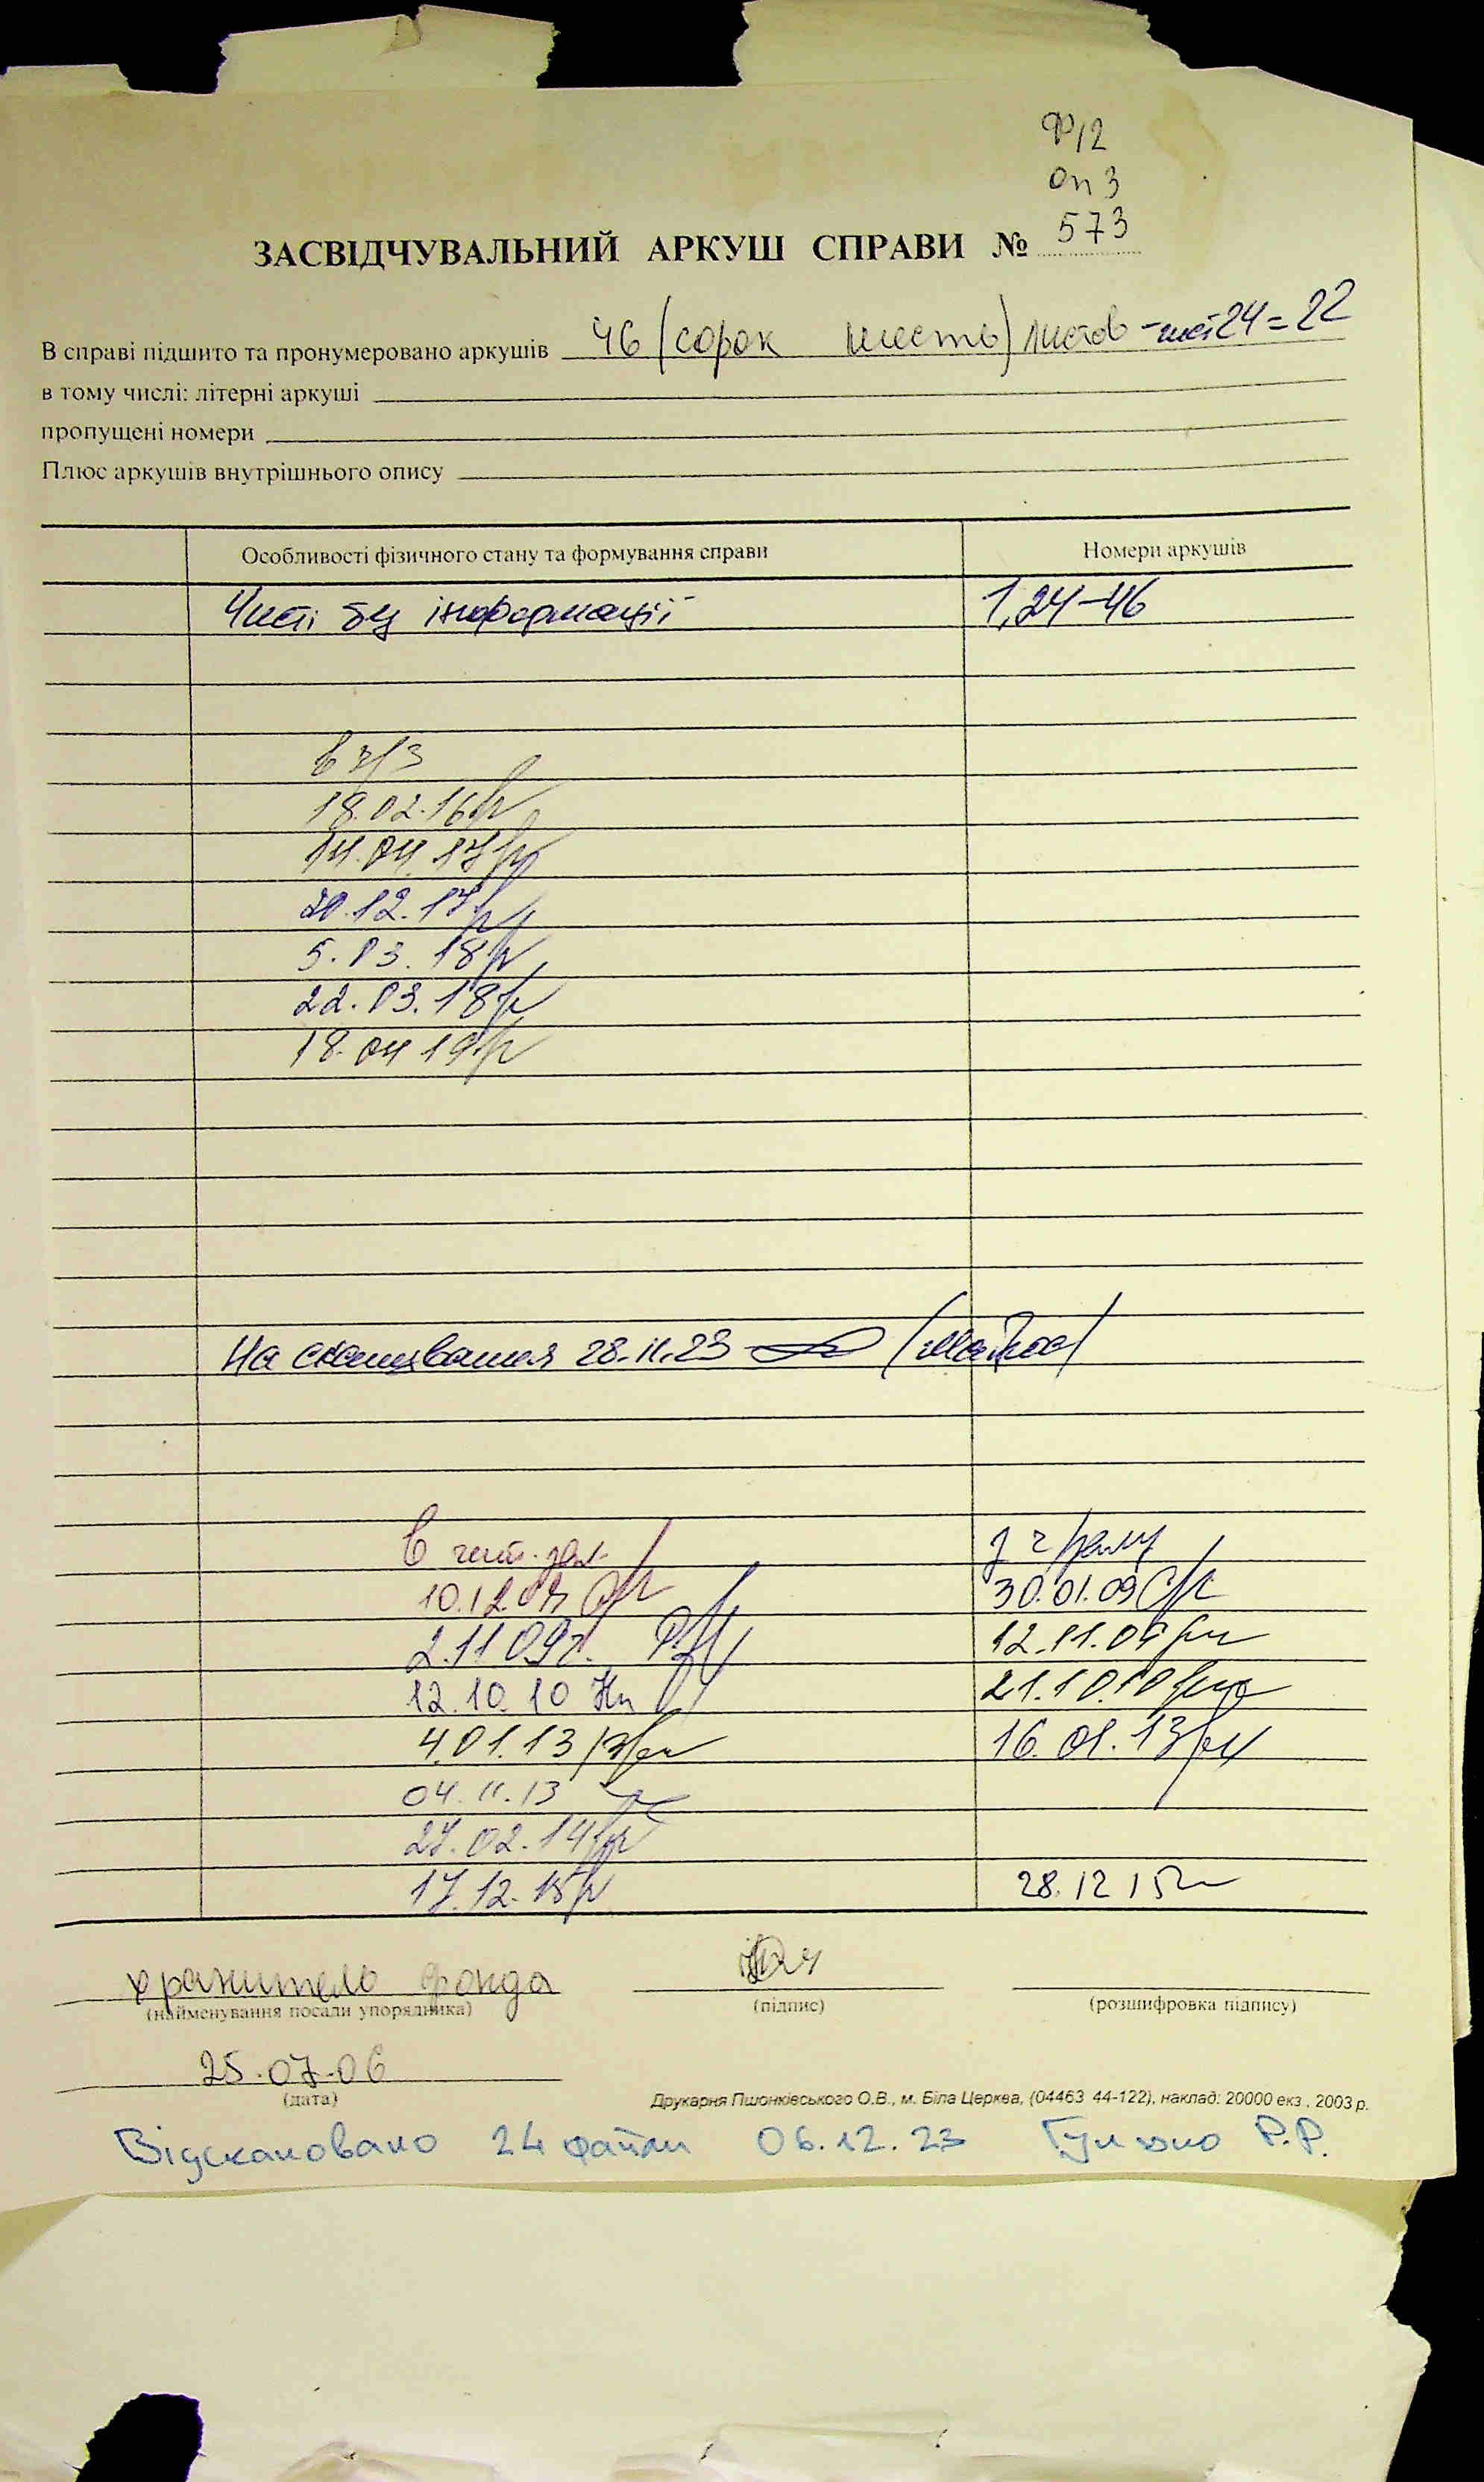 Ф12
оп 3
573
ЗАСВІДЧУВАЛЬНИЙ АРКУШ СПРАВИ №
В справі підшито та пронумеровано аркушів 46 (сорок шесть) листов - чист 24 = 22
в тому числі: літерні аркуші
пропущені номери
Плюс аркушів внутрішнього опису
Особливості фізичного стану та формування справи Номери аркушів
Чисті без інформації 1, 24-46
в ч/з
18.02.16
14.04.17
20.12.17
5.03.18
22.03.18
18.04 19
На сканування 28.11.23
в чит. зал. з ч/залу
10.12.07 30.01.09
2.11 09г. 12.11.09
12.10.10 21.10.10
4.01.13 16.01.13
04.11.13
27.02.14
17.12.15 28.12 15
хранитель фонда
(найменування посади упорядника) (підпис) (розшифровка підпису)
25.07.06
(дата)
Друкарня Пшонківського О.В., м. Біла Церква, (04463 44-122), наклад: 20000 екз., 2003 р.
Відскановано 24 файли 06.12.23 Р.Р.